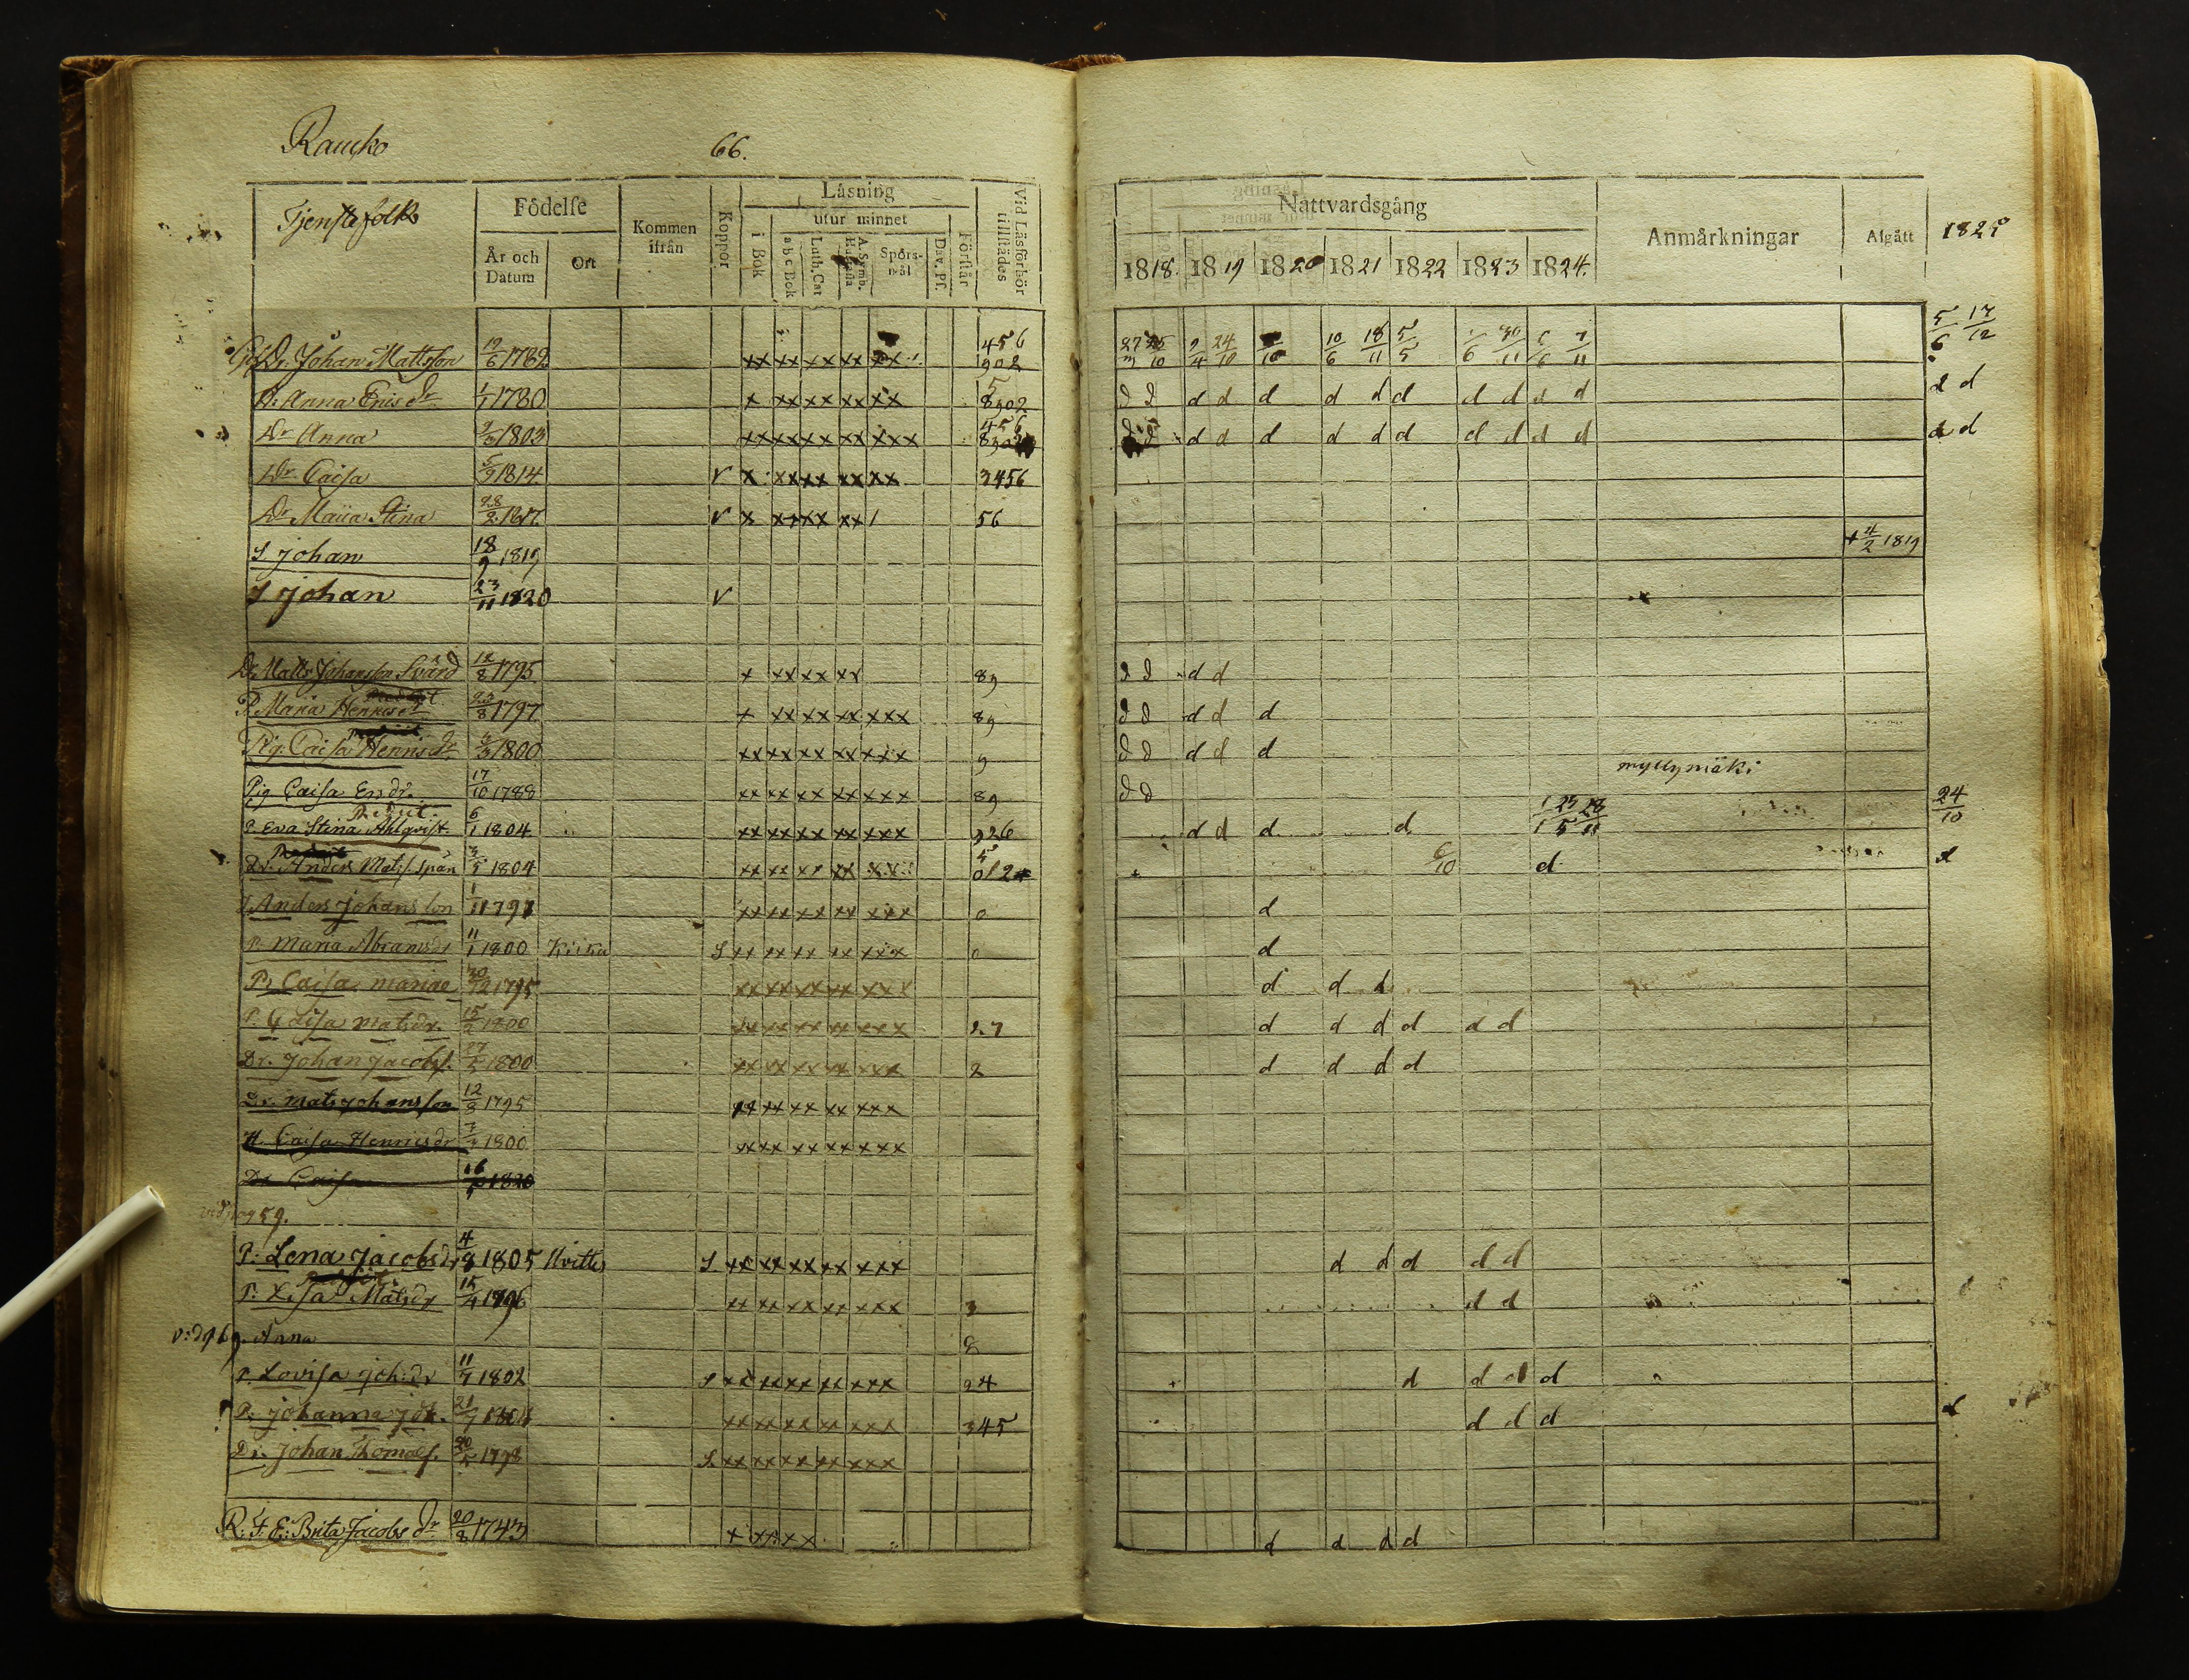 Raucko 66.
Tjenstefolk
Födelse
År och Datum
Ort
Kommen ifrån
Koppor
Läsning
i Bok
utur minnet
a b c Bok
Luth. Cat
A. Symb.
Spörs-mål
Dav. Ps.
Förstår
Vid Läsförhör tillstädes
Nattvardsgång
1818. 1819 1820 1821 1822 1823 1824.
Anmärkningar
Afgått
1825
Dr. Johan Mattsson 1782 xx xx xx xx 456 902
H: Anna Erics dr 1/1 1780 x xx xx xx xx 5 8902 d d d d d d d d d d d d d d
Dr Anna 1803 xx xx xx xx xxx 456 d d d d d d d d d d d d
Dr. Caisa 5/9 1814 v x xx xx xx xx 3456
Dr Maija Stina 28/2 1817 v x xx xx xx / 56
S johan 18/9 1819 + 11/2 1819
S johan 23/11 1820 v
Dr Matts Johansson Svärd 12/8 1795 x xx xx xx 89 d d d d
P. Maria Henricsdr 1797 x xx xx xx xxx 89 d d d d d
Pig. Caisa Henricsdr 1800 xx xx xx xx xxx 9 d d d d d
myllymäki
Pig Caisa Ersdr. 17/10 1788 xx xx xx xx xxx 89 d d
P. Eva Stina Ahlqvist 6/1 1804 xx xx xx xx xxx 926 d d d d 24/10
Dr. Anders Mats. Spän 3/5 1804 xx xx xx xx 5 012 6/10 d d
Anders Johansson 1/11 1791 xx xx xx xx xxx 0 d
P. Maria Abramsdr 11/1 1800 Kiika S xx xx xx xx xxx 0 d
P. Caisa mariae 1795 xx xx xx xx xxx d d d
P. Caisa matsdr. 15/2 1800 xx xx xx xx xxx 2.7 d d d d d d
Dr. Johan Jacobs. 27/5 1800 xx xx xx xx xxx 2 d d d d
Dr. mats Johansson 12/8 1795 xx xx xx xx xxx
H. Caisa Henricsdr 1800 xx xx xx xx xxx
Dr Caisa 1820
vid pag 59.
P. Lena Jacobsdr 4/9 1805 Hvittis S xx xx xx xx xxx d d d d d
P. Lisa Matsdr 15/4 1796 xx xx xx xx xxx 3 d d
Anna
P. Lovisa joh:dr 11/7 1802 S xx xx xx xx xxx 24 d d d d
P. johanna joh. xx xx xx xx xxx 345 d d d
Dr. Johan Thomas. 1798 S. xx xx xx xx xxx
R. F. E: Brita Jacobs dr 20/8 1743 x xx xx d d d d